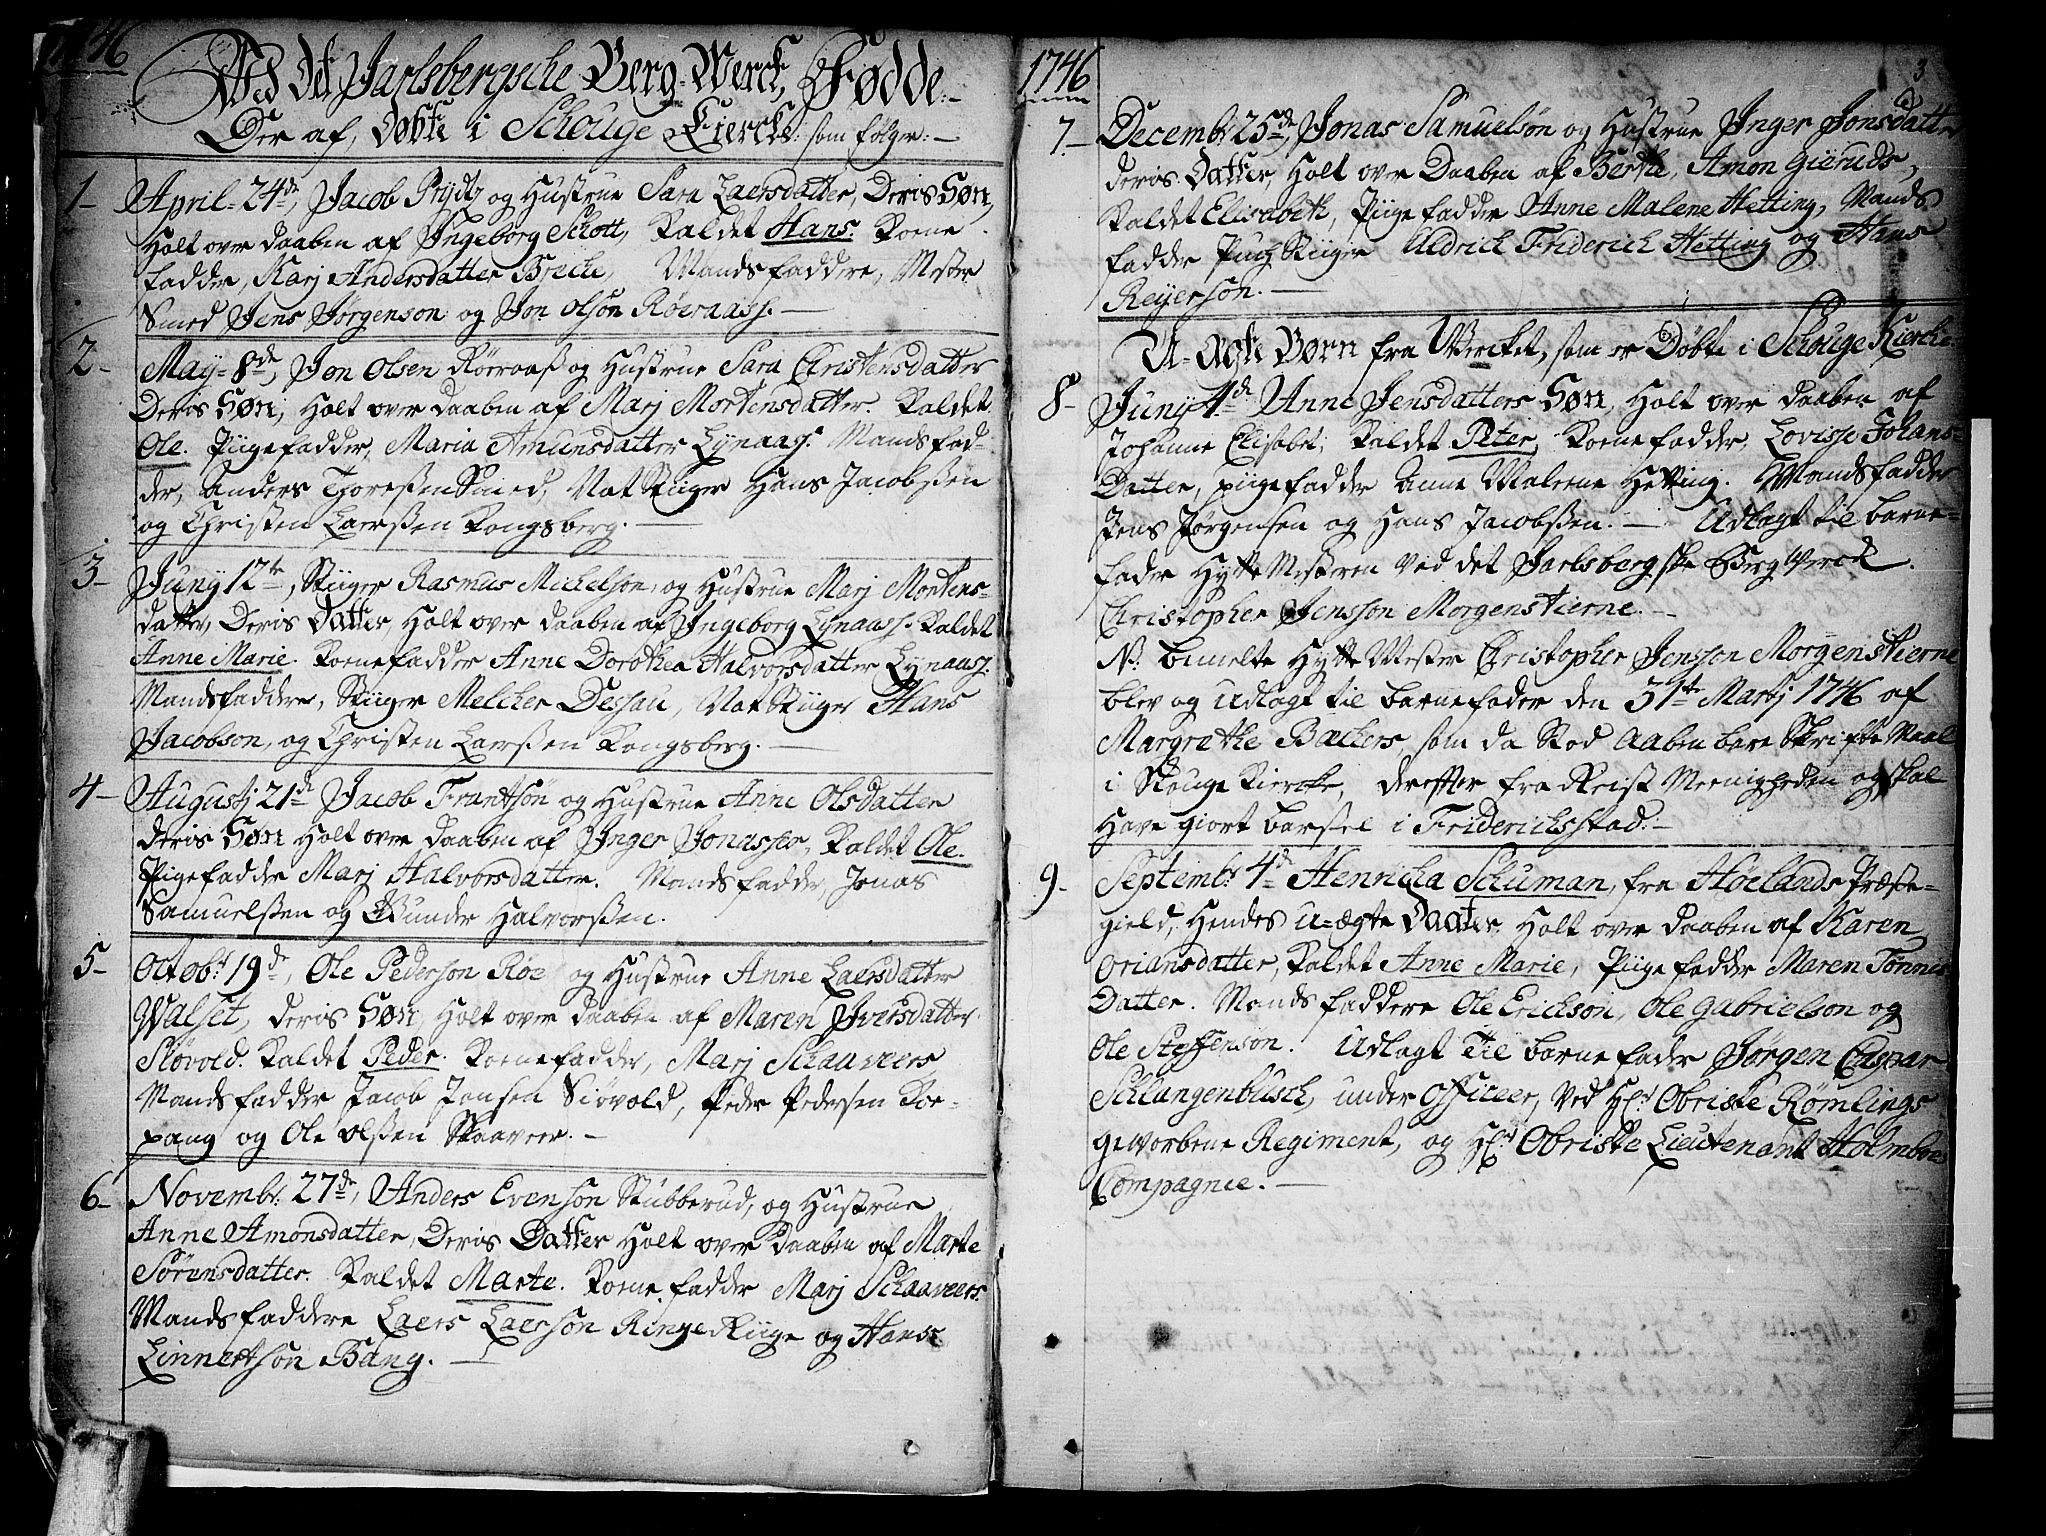 1746
Ved det Jarlsbergsche Berg-Werck, Fødde
Der af, døbte i Schouge Kiercke: som følger:—
1— April 24de, Jacob Prydtz og Hustrue Sara Laersdatter, Deris Søn,
Holt over daaben af Ingeborg Schott, Kaldet Hans. Kone
fadder, Karj Andersdatter Breche, Mandsfaddere, Mester
Smed Jens Jørgenson og Jon Olsön Röeraass.—
2— May 8de, Jon Olsen Röeraaß og Hustrue Sara Christensdatter
Deris Søn, Holt over daaben af Marj Mortensdatter. Kaldet
Ole. Piigefadder, Maria Amunsdatter Lynaas. Mandsfad-
der, Anders Thoreßen Smed, Nat Stiiger Hans Jacobßen
og Christen Laerßen Kongsberg.—
3— Juny 12te, Stiiger Rasmus Michelson, og Hustrue Marj Mortens-
datter, Deris Datter, Holt over daaben af Ingeborg Lynaass. Kaldet
Anne Marie. Konefadder Anne Dorothea Halvorsdatter Lynaass.
Mandsfaddere, Stiiger Melcher Dessau, Nat Stiiger Hans
Jacobson, og Christen Larßen Kongsberg.—
4— Augustj 21de Jacob Frantsön og Hustrue Anne Olsdatter
deris Søn Holt over daaben af Inger Jonasses, Kaldet Ole.
Piigefadder Marj Halvorsdatter. Mandsfadder, Jonas
Samuelßen og Gunder Halvorßen.
5— Octobr 19de, Ole Pederson Röe og Hustrue Anne Laersdatter
Walset, deris Søn, Holt over daaben af Maren Iversdatter
Siövold. Kaldet Peder. Konefadder, Marj Schaaveers,
Mandsfadder Jacob Jansen Siövold, Peder Pedersen Koe-
pang og Ole Olßen Skaaveer.—
6— Novembr: 27de, Anders Evensön Stubberud, og Hustrue
Anne Amonsdatter, Deris Datter Holt over Daaben af Marte
Sörensdatter. Kaldet Marte. Konefadder Marj Schaaveers.
Mandsfaddere Laers Laersön RingeRiige og Hans
Linnertsön Bang.—
1746
3
7— Decembr 25de, Jonas Samuelsøn og Hustrue Inger Jonsdatter
deris Datter, Holt over Daaben af Berthe, Amon Gieruds,
Kaldet Elisabeth, Piigefadder Anne Malene Hetting, Mands
fadder Puch Stiiger Uldrich Friderich Hetting og Hans
Reyerson.—
U-Ægte Børn fra Wercket, som er Döbte i Schouge Kierche.
8— Juny 4de Anne Jensdatters Søn, Holt over daaben af
Johanne Elisabet, Kaldet Peter, Konefadder, Lovisse Johans-
Datter, piigefadder Anne Malene Hetting. Mandsfadder
Jens Jörgensen og Hans Jacobßen.— Udlagt til barne-
fader Hytte Mesteren ved det Jarlsbergske Berg Werck.
Christopher Jensson Morgenstierne.—
N: bemelte Hytte Mester Christopher Jensson Morgenstierne
blev og Udlagt til barnefader den 31te Martj 1746 af
Margrethe Bachers, som da Stod Aabenbare Skrifte Maal
i Skouge Kiercke, dereffter fra Reist Meenigheden og skal
Have giort barsel i Friderichsstad.—
9— Septembr 4de Henricha Schuman, fra Hölands Præste-
gield, Hendes U-ægte Daatter. Holt over daaben af Karen
Oriansdatter, Kaldet Anne Marie, Piigefadder Maren Tönnes
Datter. Mandsfaddere Ole Erichson, Ole Gabrielson og
Ole Steffenson. Udlagt Til barnefader Jörgen Caspar
Schlangenbusch, under Officeer, Ved Hr. Obriste Römlings
geworbene Regiment, og Hr. Obriste Lieutenant Holmboe
Compagnie.—